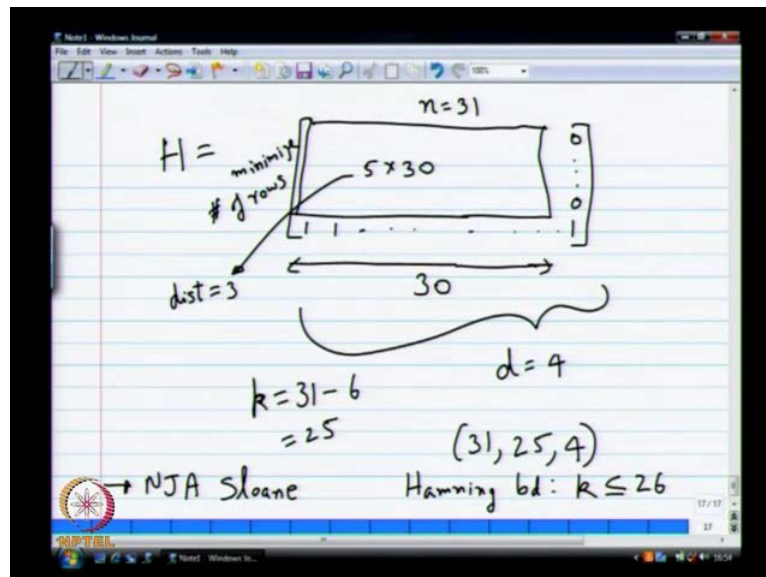 Note1 - Windows Journal
File Edit View Insert Actions Tools Help
100%
n=31
H =
minimize
# of rows
5×30
0
0
1 1 1
dist=3
30
d=4
k=31-6
=25
(31, 25, 4)
→ NJA Sloane
Hamming bd: k ≤ 26
17/17
17
NPTEL
Note1 - Windows Jo...
16:54